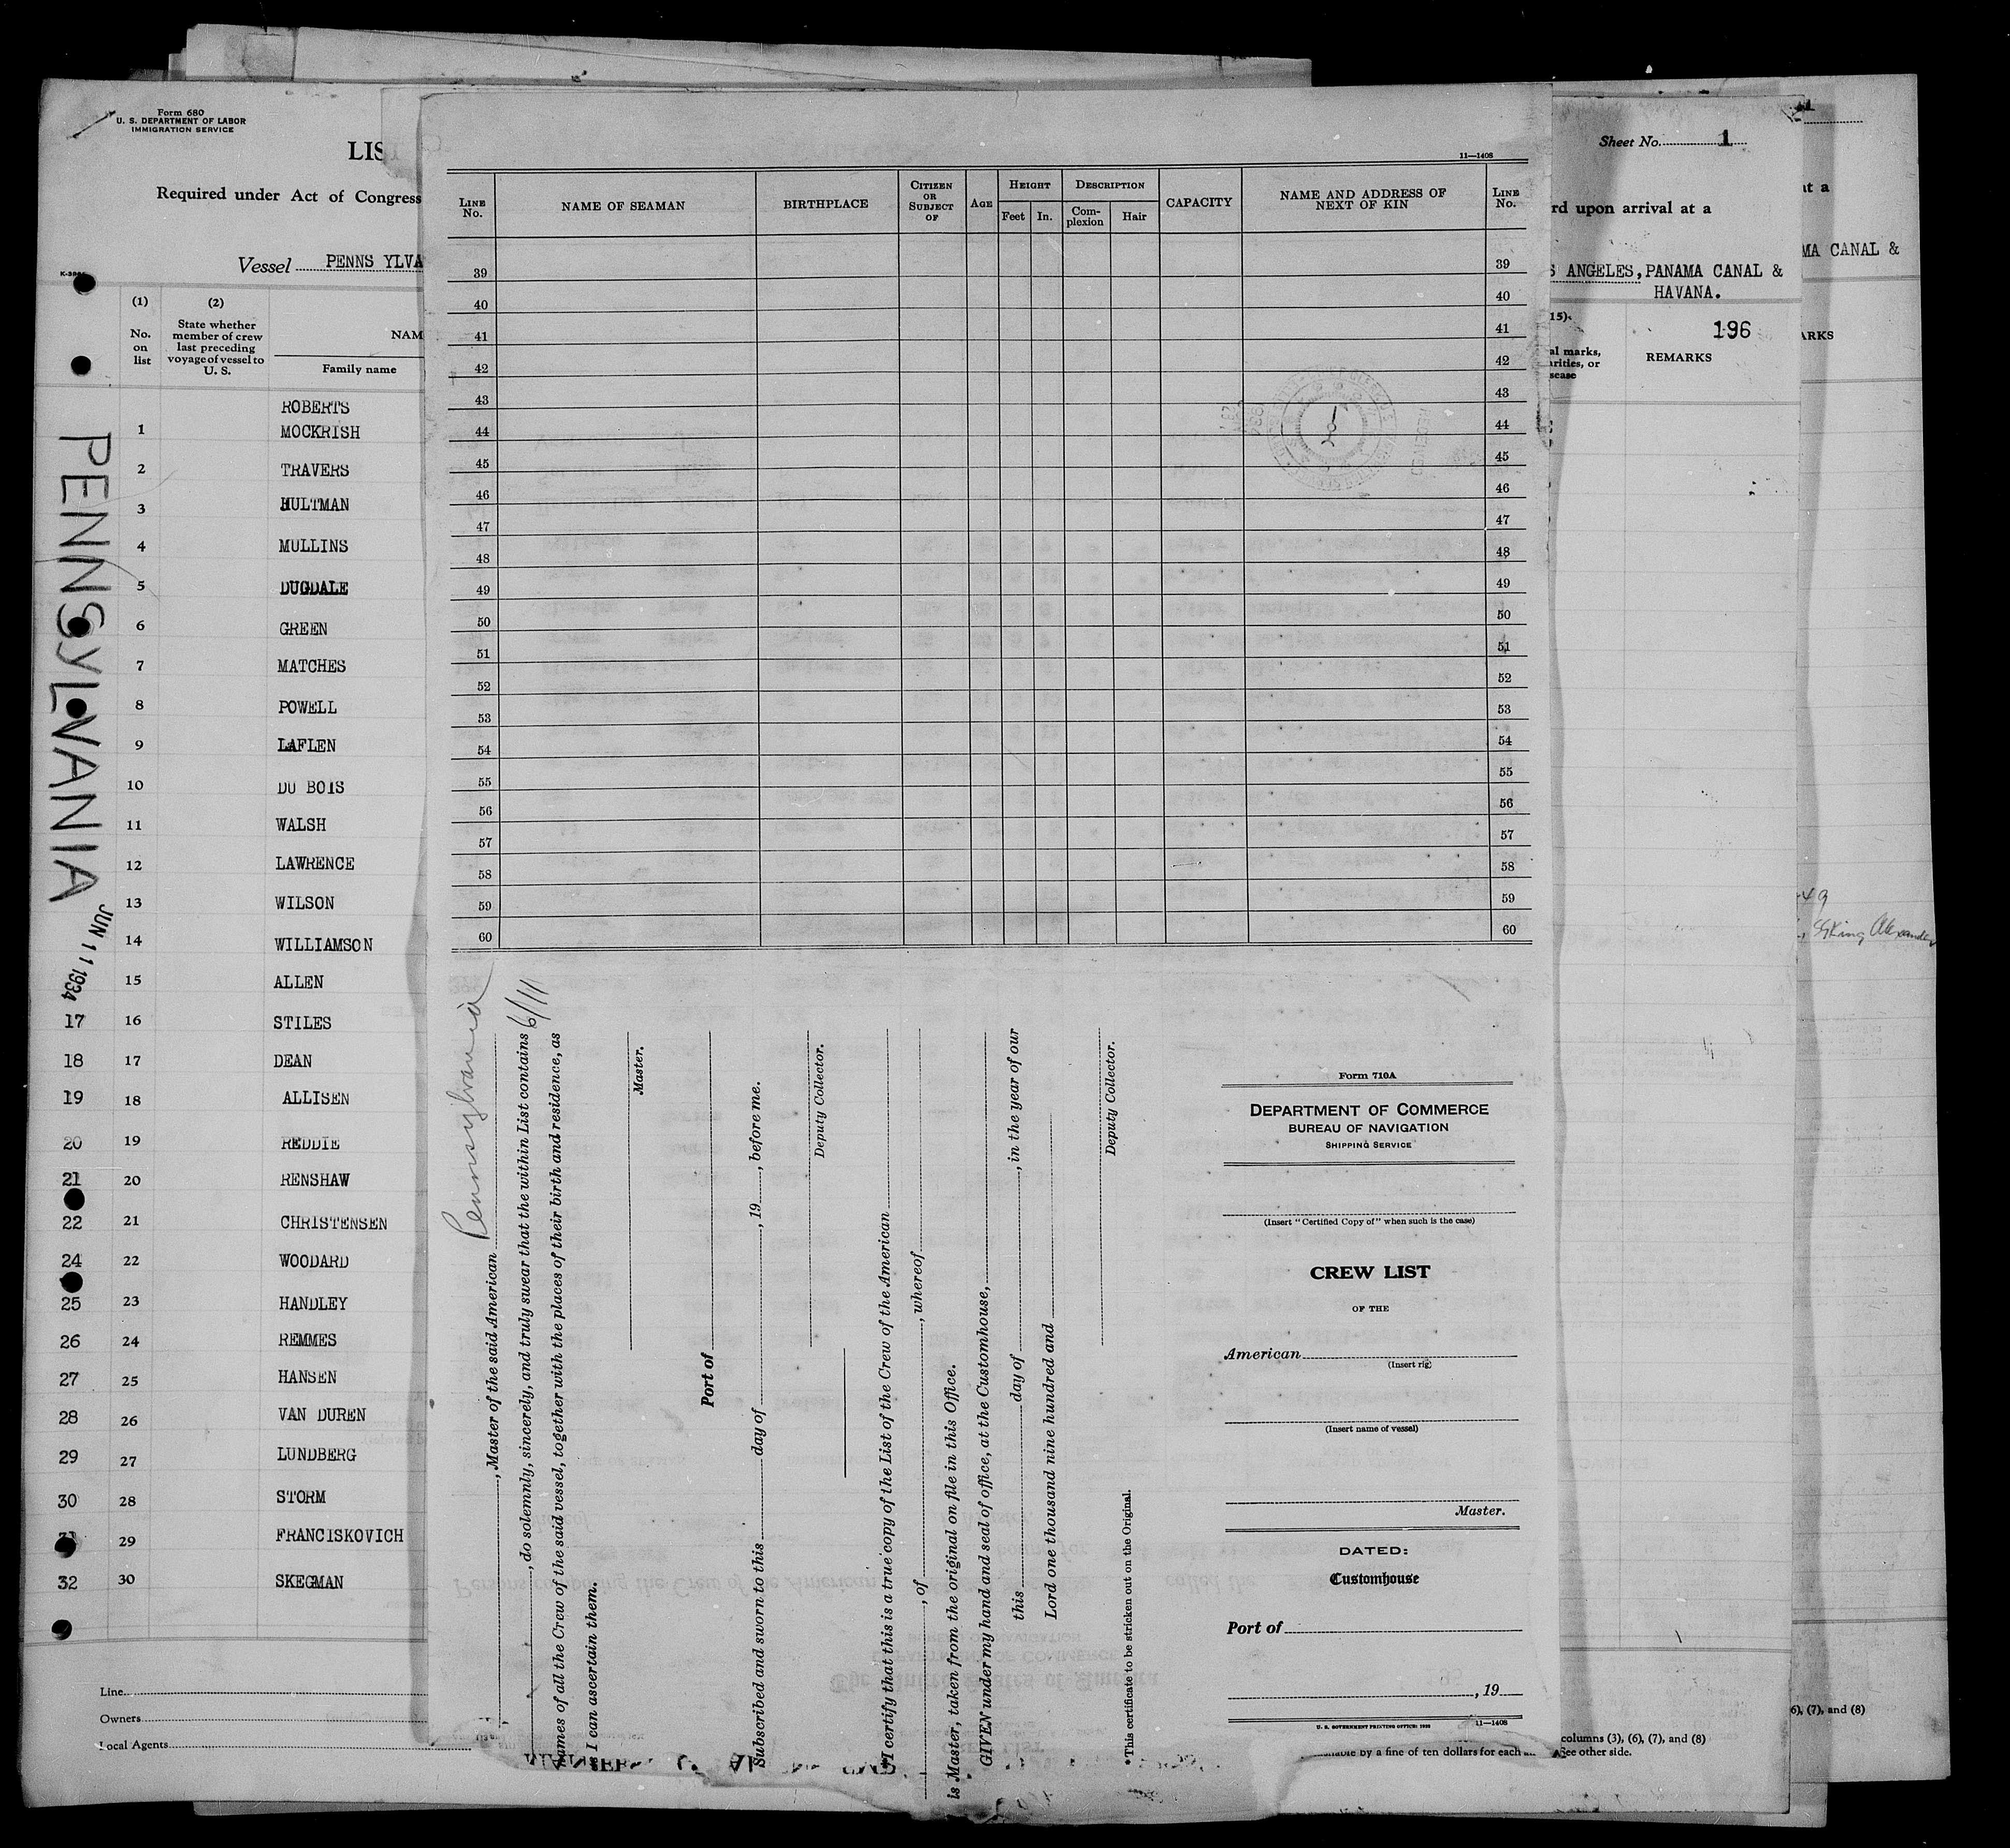 Form 680
U. S. DEPARTMENT OF LABOR
IMMIGRATION SERVICE
LIS
Required under Act of Congress
Vessel PENNS YLVA
(1) (2)
No. on list
State whether member of crew last preceding voyage of vessel to U. S.
NAM
Family name
ROBERTS
1 MOCKRISH
2 TRAVERS
3 HULTMAN
4 MULLINS
5 DUGDALE
6 GREEN
7 MATCHES
8 POWELL
9 LAFLEN
10 DU BOIS
11 WALSH
12 LAWRENCE
13 WILSON
14 WILLIAMSON
15 ALLEN
17 16 STILES
18 17 DEAN
19 18 ALLISEN
20 19 REDDIE
21 20 RENSHAW
22 21 CHRISTENSEN
24 22 WOODARD
25 23 HANDLEY
26 24 REMMES
27 25 HANSEN
28 26 VAN DUREN
29 27 LUNDBERG
30 28 STORM
29 FRANCISKOVICH
32 30 SKEGMAN
Line
Owners
Local Agents
PENNSYLVANIA
JUN 11 1934
11—1408
LINE No.
NAME OF SEAMAN
BIRTHPLACE
CITIZEN OR SUBJECT OF
AGE
HEIGHT
Feet In.
DESCRIPTION
Complexion Hair
CAPACITY
NAME AND ADDRESS OF NEXT OF KIN
LINE No.
39 39
40 40
41 41
42 42
43 43
44 44
45 45
46 46
47 47
48 48
49 49
50 50
51 51
52 52
53 53
54 54
55 55
56 56
57 57
58 58
59 59
60 60
RECEIVED
Pennsylvania
6/11
, Master of the said American
, do solemnly, sincerely, and truly swear that the within List contains
names of all the Crew of the said vessel, together with the places of their birth and residence, as
I can ascertain them.
Master.
Port of
Subscribed and sworn to this day of , 19 , before me.
Deputy Collector.
*I certify that this is a true copy of the List of the Crew of the American
, of , whereof
is Master, taken from the original on file in this Office.
GIVEN under my hand and seal of office, at the Customhouse,
this day of , in the year of our
Lord one thousand nine hundred and
Deputy Collector.
*This certificate to be stricken out on the Original.
Form 710A
DEPARTMENT OF COMMERCE
BUREAU OF NAVIGATION
SHIPPING SERVICE
(Insert "Certified Copy of" when such is the case)
CREW LIST
OF THE
American
(Insert rig)
(Insert name of vessel)
Master.
DATED:
Customhouse
Port of
, 19
U. S. GOVERNMENT PRINTING OFFICE: 11—1408
by a fine of ten dollars for each
Sheet No. 1
rd upon arrival at a
S ANGELES, PANAMA CANAL &
HAVANA.
15)
al marks,
arities, or
sease
196
REMARKS
columns (3), (6), (7), and (8)
See other side.
1
at a
MA CANAL &
ARKS
49
King Alexander
6), (7), and (8)